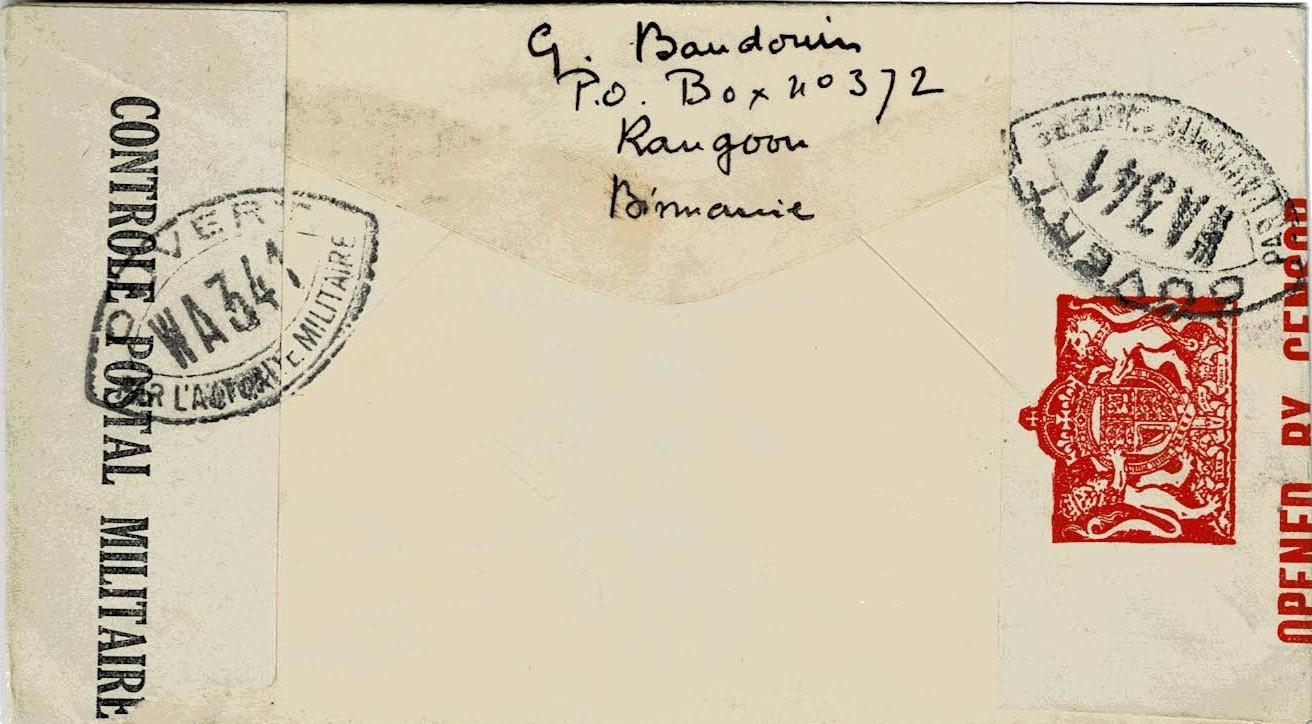 G. Baudouin
P.O. Box no 372
Rangoon
Birmanie
CONTROLE POSTAL MILITAIRE
OUVERT
WA341
PAR L'AUTORITE MILITAIRE
OUVERT
WA341
PAR L'AUTORITE MILITAIRE
OPENED BY CENSOR